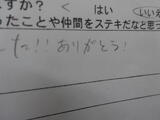 すか？ < はい いいえ
ったことや仲間をステキだなと思っ
した!!ありがとう!